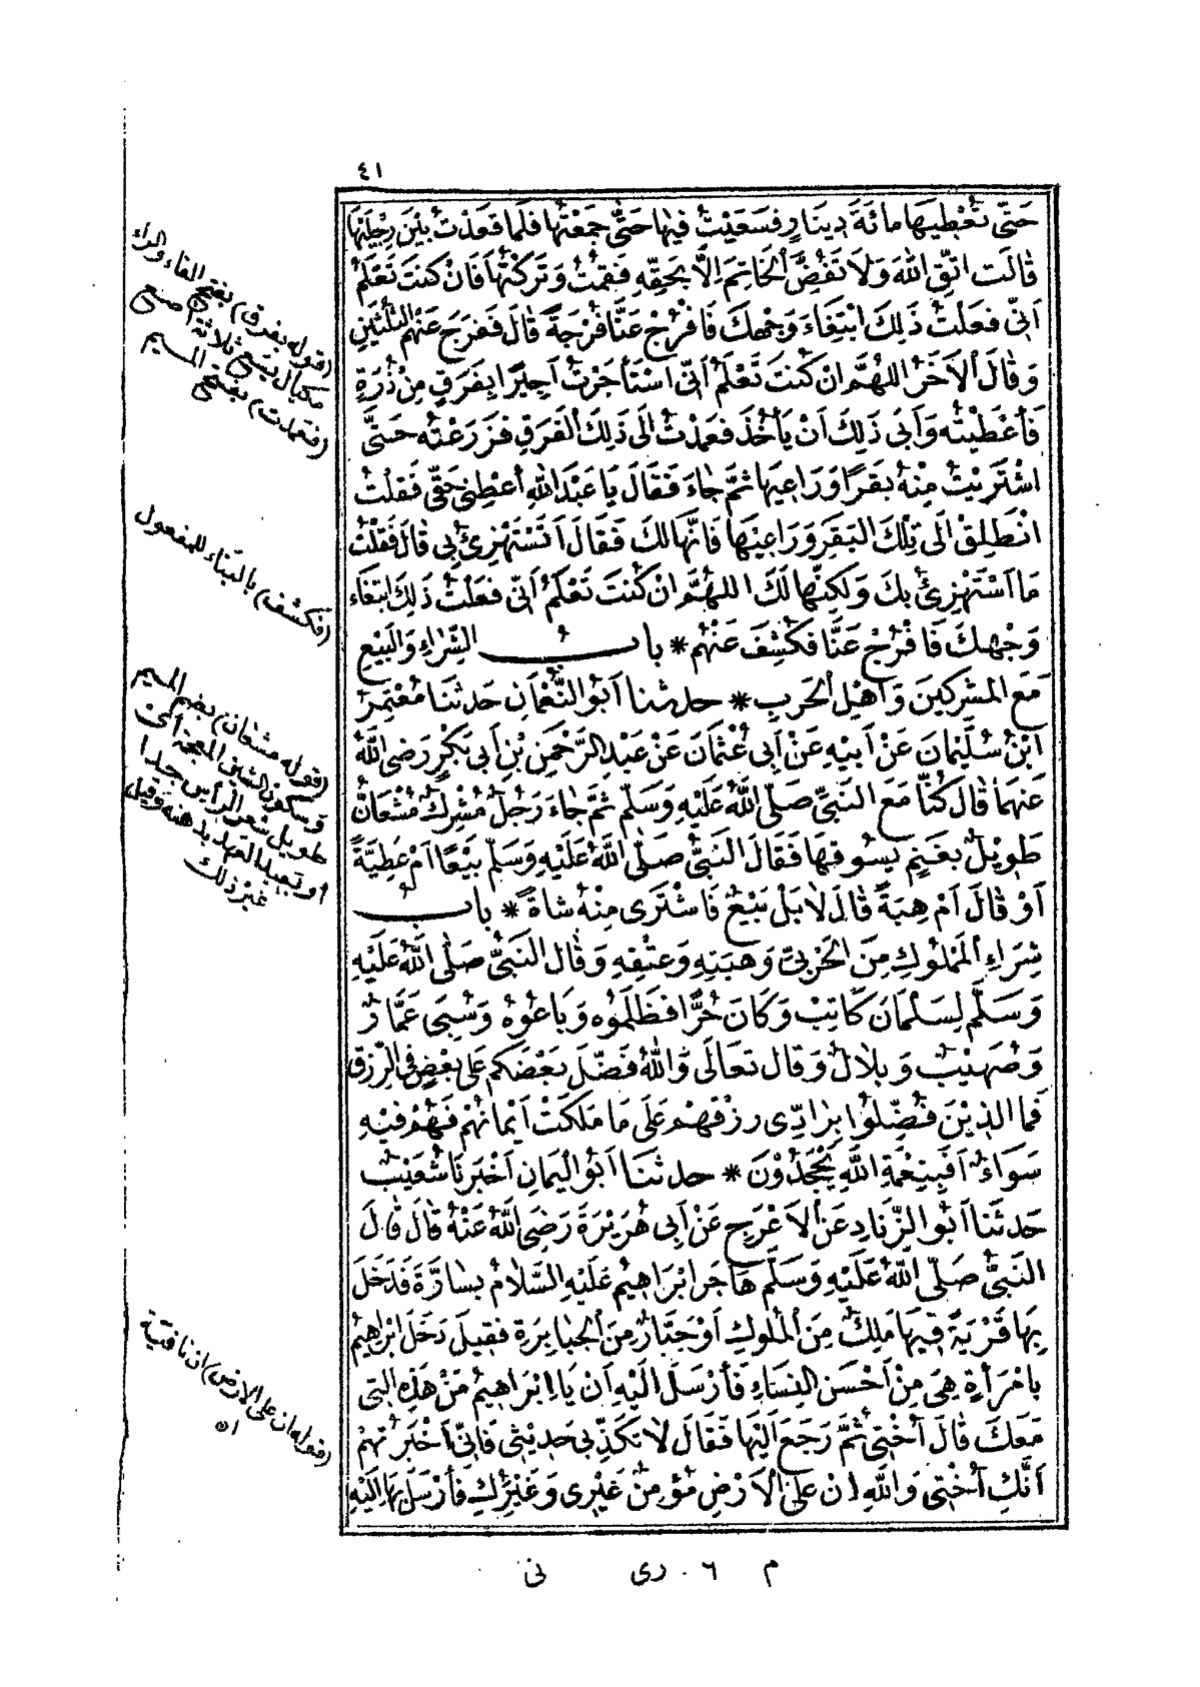 ٤١
حَتَّى تُعْطِيَهَا مِائَةَ دِينَارٍ فَسَعَيْتُ فِيهَا حَتَّى جَمَعْتُهَا فَلَمَّا قَعَدْتُ بَيْنَ رِجْلَيْهَا
قَالَتِ اتَّقِ اللهَ وَلَا تَفُضَّ الْخَاتِمَ إِلَّا بِحَقِّهِ فَقُمْتُ وَتَرَكْتُهَا فَإِنْ كُنْتَ تَعْلَمُ
أَنِّي فَعَلْتُ ذَلِكَ ابْتِغَاءَ وَجْهِكَ فَافْرُجْ عَنَّا فُرْجَةً قَالَ فَفَرَجَ عَنْهُمُ الثُّلُثَيْنِ
وَقَالَ الْآخَرُ اللَّهُمَّ إِنْ كُنْتَ تَعْلَمُ أَنِّي اسْتَأْجَرْتُ أَجِيرًا بِفَرَقٍ مِنْ ذُرَةٍ
فَأَعْطَيْتُهُ وَأَبَى ذَلِكَ أَنْ يَأْخُذَ فَعَمَدْتُ إِلَى ذَلِكَ الْفَرَقِ فَزَرَعْتُهُ حَتَّى
اشْتَرَيْتُ مِنْهُ بَقَرًا وَرَاعِيَهَا ثُمَّ جَاءَ فَقَالَ يَا عَبْدَ اللهِ أَعْطِنِي حَقِّي فَقُلْتُ
انْطَلِقْ إِلَى تِلْكَ الْبَقَرِ وَرَاعِيهَا فَإِنَّهَا لَكَ فَقَالَ أَتَسْتَهْزِئُ بِي قَالَ فَقُلْتُ
مَا أَسْتَهْزِئُ بِكَ وَلَكِنَّهَا لَكَ اللَّهُمَّ إِنْ كُنْتَ تَعْلَمُ أَنِّي فَعَلْتُ ذَلِكَ ابْتِغَاءَ
وَجْهِكَ فَافْرُجْ عَنَّا فَكُشِفَ عَنْهُمْ * بابُ الشِّرَاءِ وَالْبَيْعِ
مَعَ الْمُشْرِكِينَ وَأَهْلِ الْحَرْبِ * حدثنا أَبُو النُّعْمَانِ حَدثنَا مُعْتَمِرُ
ابْنُ سُلَيْمَانَ عَنْ أَبِيهِ عَنْ أَبِي عُثْمَانَ عَنْ عَبْدِ الرَّحْمَنِ بْنِ أَبِي بَكْرٍ رَضِيَ اللهُ
عَنْهُمَا قَالَ كُنَّا مَعَ النَّبِيِّ صَلَّى اللهُ عَلَيْهِ وَسَلَّمَ ثُمَّ جَاءَ رَجُلٌ مُشْرِكٌ مُشْعَانٌّ
طَوِيلٌ بِغَنَمٍ يَسُوقُهَا فَقَالَ النَّبِيُّ صَلَّى اللهُ عَلَيْهِ وَسَلَّمَ بَيْعًا أَمْ عَطِيَّةً
أَوْ قَالَ أَمْ هِبَةً قَالَ لَا بَلْ بَيْعٌ فَاشْتَرَى مِنْهُ شَاةً * بابُ
شِرَاءِ الْمَمْلُوكِ مِنَ الْحَرْبِيِّ وَهِبَتِهِ وَعِتْقِهِ وَقَالَ النَّبِيُّ صَلَّى اللهُ عَلَيْهِ
وَسَلَّمَ لِسَلْمَانَ كَاتِبْ وَكَانَ حُرًّا فَظَلَمُوهُ وَبَاعُوهُ وَسُبِيَ عَمَّارٌ
وَصُهَيْبٌ وَبِلَالٌ وَقَالَ تَعَالَى وَاللهُ فَضَّلَ بَعْضَكُمْ عَلَى بَعْضٍ فِي الرِّزْقِ
فَمَا الَّذِينَ فُضِّلُوا بِرَادِّي رِزْقِهِمْ عَلَى مَا مَلَكَتْ أَيْمَانُهُمْ فَهُمْ فِيهِ
سَوَاءٌ أَفَبِنِعْمَةِ اللهِ يَجْحَدُونَ * حدثنَا أَبُو الْيَمَانِ أَخْبَرَنَا شُعَيْبٌ
حَدثَنَا أَبُو الزِّنَادِ عَنِ الْأَعْرَجِ عَنْ أَبِي هُرَيْرَةَ رَضِيَ اللهُ عَنْهُ قَالَ قَالَ
النَّبِيُّ صَلَّى اللهُ عَلَيْهِ وَسَلَّمَ هَاجَرَ إِبْرَاهِيمُ عَلَيْهِ السَّلَامُ بِسَارَّةَ فَدَخَلَ
بِهَا قَرْيَةً فِيهَا مَلِكٌ مِنَ الْمُلُوكِ أَوْ جَبَّارٌ مِنَ الْجَبَابِرَةِ فَقِيلَ دَخَلَ إِبْرَاهِيمُ
بِامْرَأَةٍ هِيَ مِنْ أَحْسَنِ النِّسَاءِ فَأَرْسَلَ إِلَيْهِ أَنْ يَا إِبْرَاهِيمُ مَنْ هَذِهِ الَّتِي
مَعَكَ قَالَ أُخْتِي ثُمَّ رَجَعَ إِلَيْهَا فَقَالَ لَا تُكَذِّبِي حَدِيثِي فَإِنِّي أَخْبَرْتُهُمْ
أَنَّكِ أُخْتِي وَاللهِ إِنْ عَلَى الْأَرْضِ مُؤْمِنٌ غَيْرِي وَغَيْرُكِ فَأَرْسَلَ بِهَا إِلَيْهِ
(قوله بفرق) بفتح الفاء والراء
مكيال يسع ثلاثة أصع
(فعمدت) بفتح الميم
(فكشف) بالبناء للمفعول
(قوله مشعان) بضم الميم
وسكون الشين المعجمة أي
طويل شعر الرأس جدا
أو تعبد العهد بدهنه وقيل
غير ذلك
(قوله ان على الارض) ان نافية
اه
م ٦ . رى نى